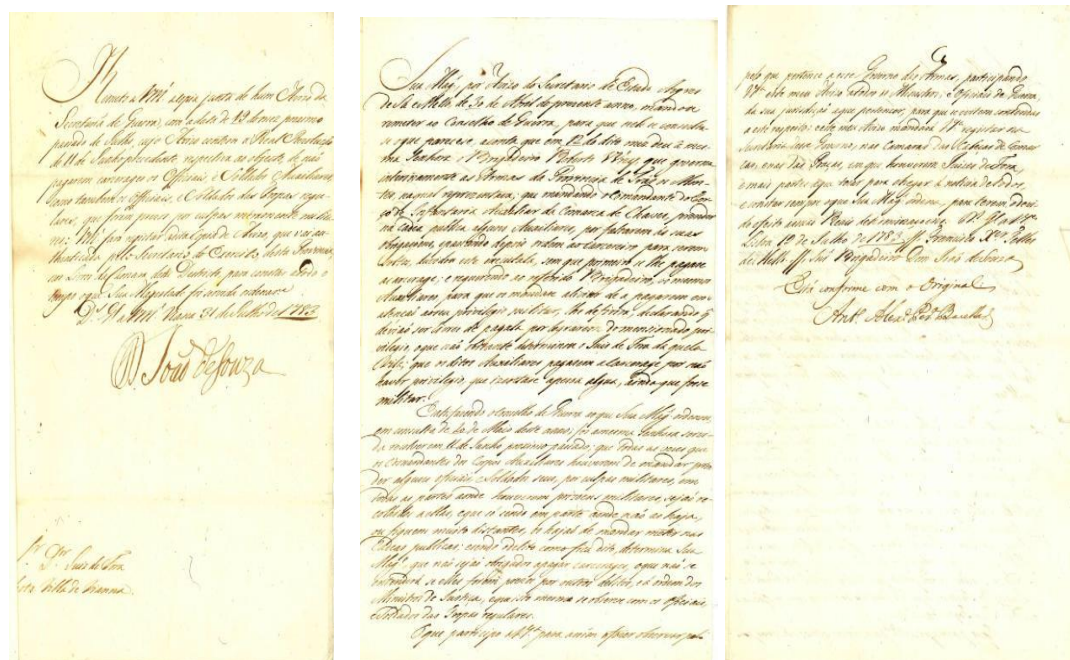 Remeto a Vm.ce copia junta de hum Avizo da
Secretaria de Guerra, com a data de 12 do mez proximo
passado de Julho, cujo Avizo contem a Real Rezolução
de 11 de Junho precedente, respectiva ao objecto de não
pagarem carceragem os Officiaes, e Soldados Auxiliares,
como tambem os Officiaes, e Soldados das Tropas regu-
lares, que forem prezos por culpas meramente milita-
res: Vm.ce fará registar esta Copia de Avizo, que vai au-
thenticada pelo Secretario
para constar a todo o
tempo o que Sua Magestade foi servida ordenar
D.s G.e a Vm.ce Vianna 31 de Julho de 1783
D. João de Souza
Sr. D.r Juiz de Fora
desta Villa de Vianna.
Sua Mag.e, por Avizo do Secretario de Estado Ayres
de Sá e Mello, de 30 de Abril do prezente anno, mandou
remeter ao Conselho de Guerra, para que nele se consulta-
se o que parecese, a conta que em 12 do dito mez deu á mes-
ma Senhora o Brigadeiro que governa
interinamente as Armas da Provincia de Traz os Mon-
tes, na qual reprezentava, que mandando o Comandante do Cor-
po de Infantaria Auxiliar da Comarca de Chaves, prender
na cadea publica alguns Auxiliares, por faltarem ás suas
obrigaçoens, e pasando depois ordem ao Carcereiro para serem
soltos, duvidou este executala, sem que primeiro se lhe pagase
a carceragem; e requerendo ao referido Brigadeiro, os mesmos
Auxiliares, para que os mandase aliviar de a pagarem em
atenção ao seu privilegio militar, lhe deferira, declarando q
deviaõ ser livres de pagala por do mencionado pri-
vilegio, o que não obstante determinou o Juiz de Fora daquela
que os ditos Auxiliares pagasem a Carceragem por não
haver privilegio, que izentase a pesoa algua, ainda que fose
militar.
Satisfazendo o Conselho de Guerra ao que Sua Mag.e ordenou,
em consulta de 20 de Maio deste anno; foi a mesma Senhora servi-
da rezolver em 11 de Junho proximo pasado; que todas as vezes que
os Comandantes dos Corpos Auxiliares houverem de mandar pren-
der alguns oficiaes, e Soldados seus, por culpas militares, em
todas as partes aonde houverem prizoens militares, sejaõ re-
colhidos a ellas, e que só sendo em parte aonde não as haja,
ou fiquem muito distantes, os hajaõ de mandar meter nas
Cadeas publicas: e sendo o delito como fica dito, determina Sua
Mag.e que não sejaõ obrigados a pagar carceragem, o que não se
entenderá se elles forem prezos por outros delitos, e á ordem dos
Ministros de Justiça, e que isto mesmo se observe com os Oficiaes,
e Soldados das Tropas regulares.
O que participo a V.S.a para asim o fazer observar pelo
pelo que pertence a ese Governo das Armas, participando
V.S.a este meu Avizo a todos os Ministros, e Oficiaes de Guerra,
da sua jurisdição a que pertencer, para que se evitem contendas
a este respeito: este meu Avizo mandará V.S.a registar na
Secretaria dese Governo, nas Camaras das Cabeças de Comar-
cas, e nas das Terras, em que houverem Juizes de Fora,
e mais partes a que tocar para chegar á noticia de todos,
e constar sempre o que S. Mag.e ordena, para terem o devi-
do efeito as suas Reaes determinaçoens. D.s G.e a V.S.a
Lisboa 12 de Julho de 1783 // Francisco X.er Telles
de Mello // Snr. Brigadeiro Dom João de Souza
Está conforme com o Original
Ant.o Alex.e